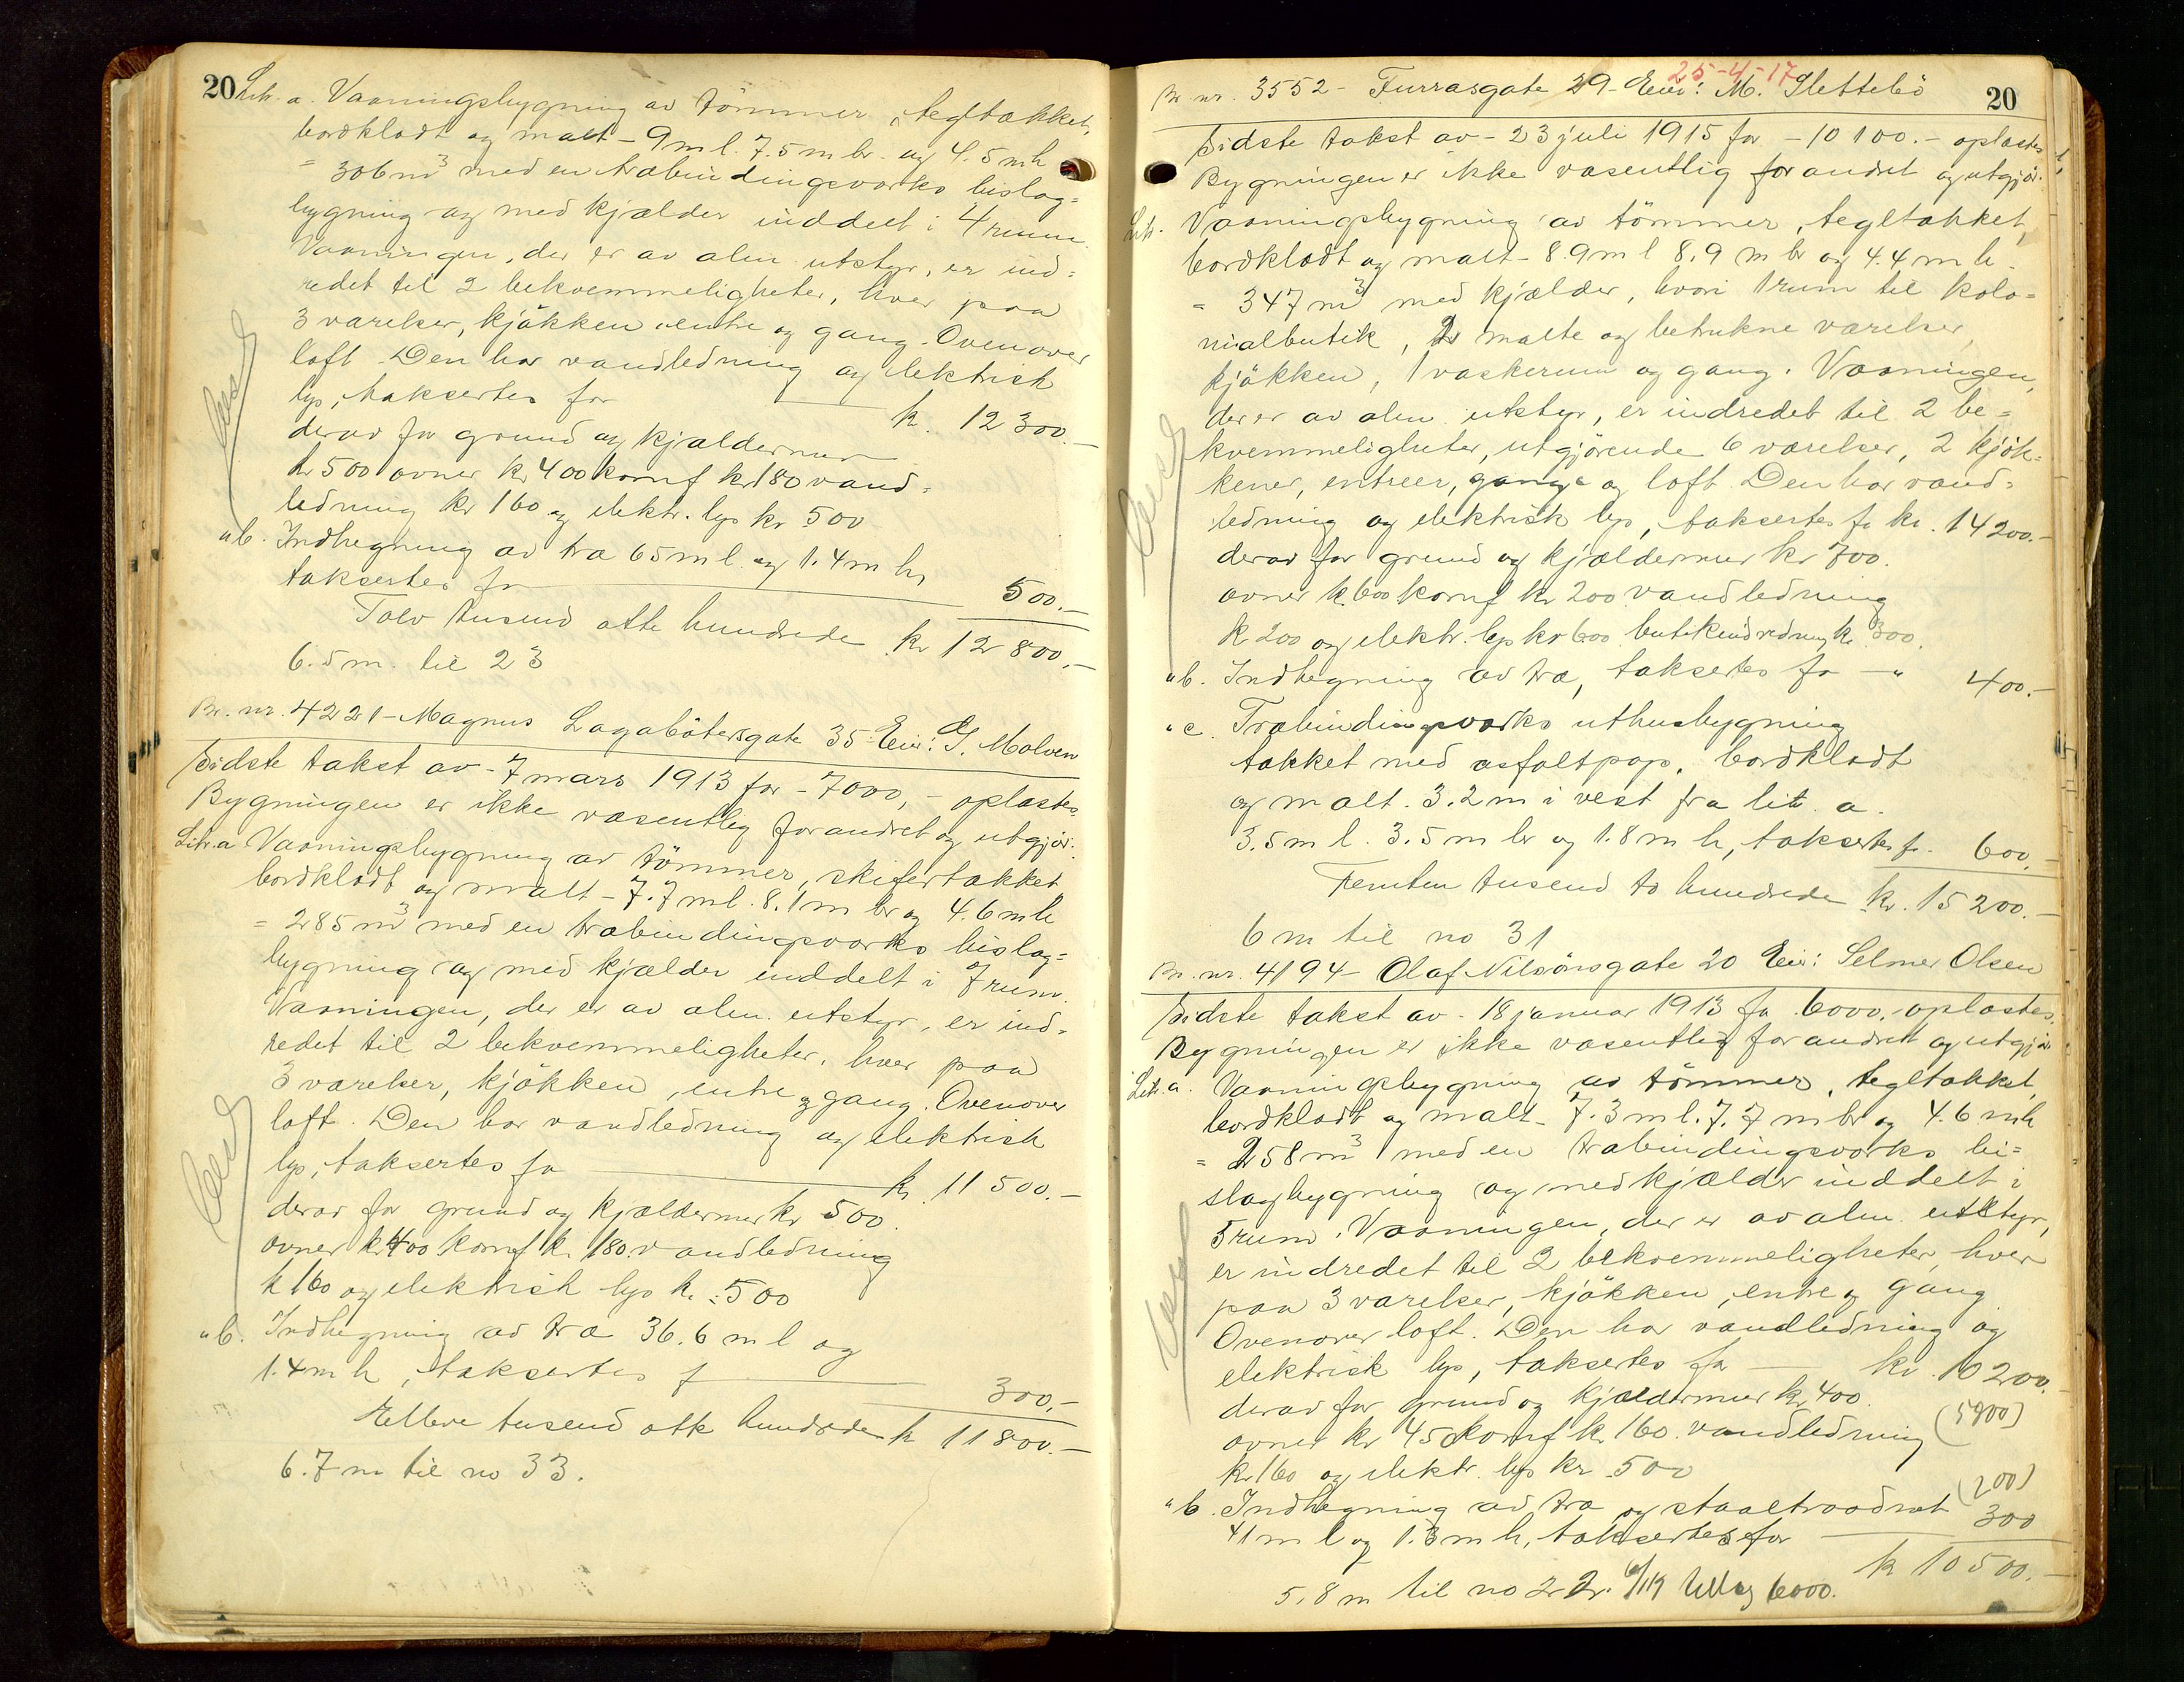 20 Litr. a. Vaaningsbygning av tömmer, tegltækket,
bordklædt og malt - 9 m l. 7.5 m br. og 4.5 m h
= 306 m³ med en træbindingsværks bislag=
bygning og med kjælder inddelt i 4 rum.
Vaaningen, der er av alm. utstyr, er ind=
redet til 2 bekvemmeligheter, hver paa
3 værelser, kjökken entre og gang. Ovenover
loft. Den har vandledning og elektrisk
lys, taksertes for kr. 12 300.-
derav for grund og kjældermur
kr 500 ovner kr 400 komf kr 180 vand=
ledning kr 160 og elektr. lys kr 500
" b. Indhegning av træ 65 m l. og 1.4 m h,
taksertes for 500.-
Tolv tusend otte hundrede kr 12 800.-
6.5 m. til 23
Br. nr. 4221 - Magnus Lagabötersgate 35 Eier: G. Molven
Sidste takst av - 7 mars 1913 for - 7000,- oplæstes.
Bygningen er ikke væsentlig forandret og utgjör:
Litr. a Vaaningsbygning av tömmer, skifertækket
bordklædt og malt - 7.7 m l. 8.1 m br og 4.6 m h
= 285 m³ med en træbindingsværks bislag=
bygning og med kjælder inddelt i 7 rum.
Vaaningen, der er av alm. utstyr, er ind=
redet til 2 bekvemmeligheter, hver paa
3 værelser, kjökken, entre og gang. Ovenover
loft. Den har vandledning og elektrisk
lys, taksertes for kr. 11 500.-
derav for grund og kjældermur kr 500.
ovner kr 400 komf kr. 180. vandledning
kr 160 og elektrisk lys kr. 500
" b. Indhegning av træ 36.6 m l og
1.4 m h, taksertes f 300,-
Elleve tusend otte hundrede kr 11 800.-
6.7 m til no 33.
25-4-17
Br. nr. 3552 - Furrasgate 29 - Eier: M. Slettebö 20
Sidste takst av - 23 juli 1915 for - 10 100.- oplæstes
Bygningen er ikke væsentlig forandret og utgjör:
Litr. Vaaningsbygning av tömmer, tegltækket,
bordklædt og malt - 8.9 m l 8.9 m br og 4.4 m h.
= 347 m³ med kjælder, hvori 1 rum til kolo=
nialbutik, 2 malte og betrukne værelser,
kjökken, 1 vaskerum og gang. Vaaningen,
der er av alm. utstyr, er indredet til 2 be=
kvemmeligheter, utgjörende 6 værelser, 2 kjök=
kener, entreer, gange og loft. Den har vand=
ledning og elektrisk lys, taksertes for kr. 14 200.-
derav for grund og kjældermur kr 700.
ovner kr. 600 komf kr 200 vandledning
kr 200 og elektr. lys kr 600 butikindredning kr. 300.
" b. Indhegning av træ, taksertes for - " 400.-
" c. Træbindingsværks uthusbygning
tækket med asfaltpap, bordklædt
og malt. 3.2 m i vest fra litr. a.
3.5 m l. 3.5 m br og 1.8 m h, taksertes f. 600.-
Femten tusend to hundrede kr. 15 200.-
6 m til no 31
Br. nr. 4194 - Olaf Nilsönsgate 20 Eier: Selmer Olsen
Sidste takst av - 18 januar 1913 for 6000.- oplæstes.
Bygningen er ikke væsentlig forandret og utgjör
Litr. a. Vaaningsbygning av tömmer, tegltækket,
bordklædt og malt - 7.3 m l. 7.7 m br og 4.6 m h
= 258 m³ med en træbindingsværks bi=
slagbygning og med kjælder inddelt i
5 rum. Vaaningen, der er av alm. utstyr,
er indredet til 2 bekvemmeligheter, hver
paa 3 værelser, kjökken, entre og gang
Ovenover loft. Den har vandledning og
elektrisk lys, taksertes for kr. 10 200.-
derav for grund og kjældermur kr 400. (5800)
ovner kr 450 komf kr. 160. vandledning
kr 160 og elektr. lys kr 500
" b. Indhegning av træ og staaltraadnet (200)
41 m l og 1.3 m h, taksertes for 300
kr 10 500.-
5.8 m til no 22. 6000.